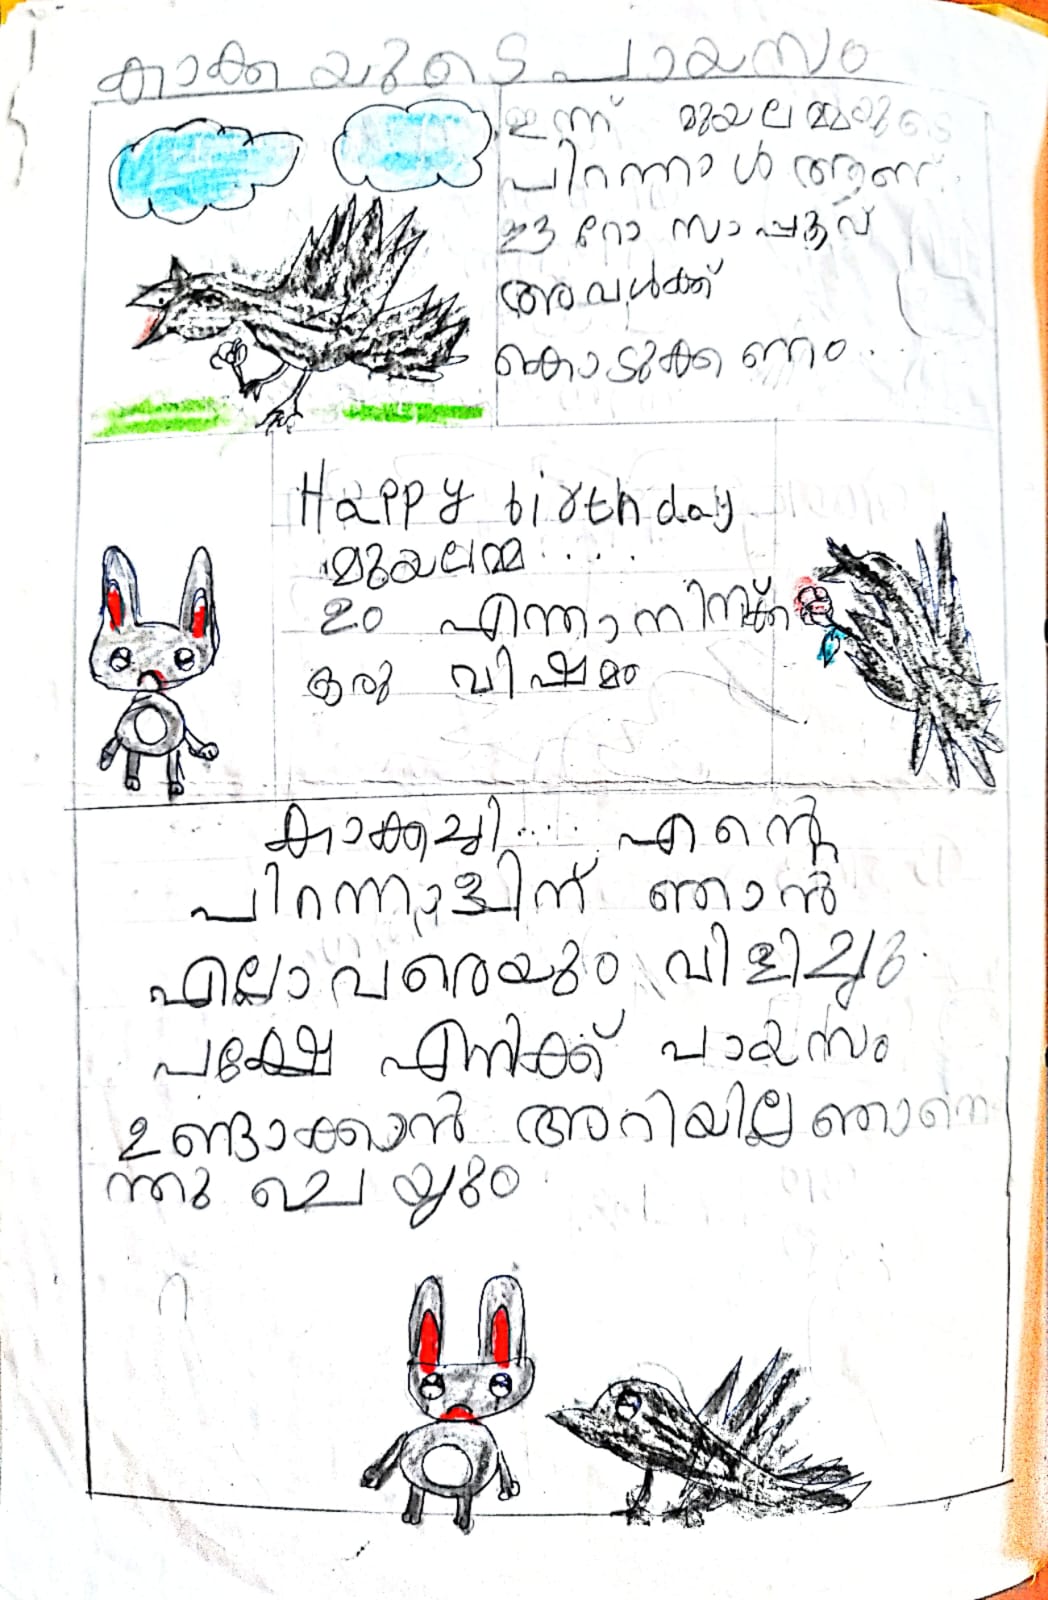 കാക്കയുടെ പായസം
ഇന്ന് മുയലമ്മയുടെ
പിറന്നാൾ ആണ്.
ഈ റോസാപ്പൂവ്
അവൾക്ക്
കൊടുക്കണം.
Happy birthday
മുയലമ്മ.....
ഉം എന്താ നിനക്ക്
ഒരു വിഷമം
കാക്കച്ചി..... എന്റെ
പിറന്നാളിന് ഞാൻ
എല്ലാവരെയും വിളിച്ചു.
പക്ഷേ എനിക്ക് പായസം
ഉണ്ടാക്കാൻ അറിയില്ല ഞാനെ
ന്തു ചെയ്യും.